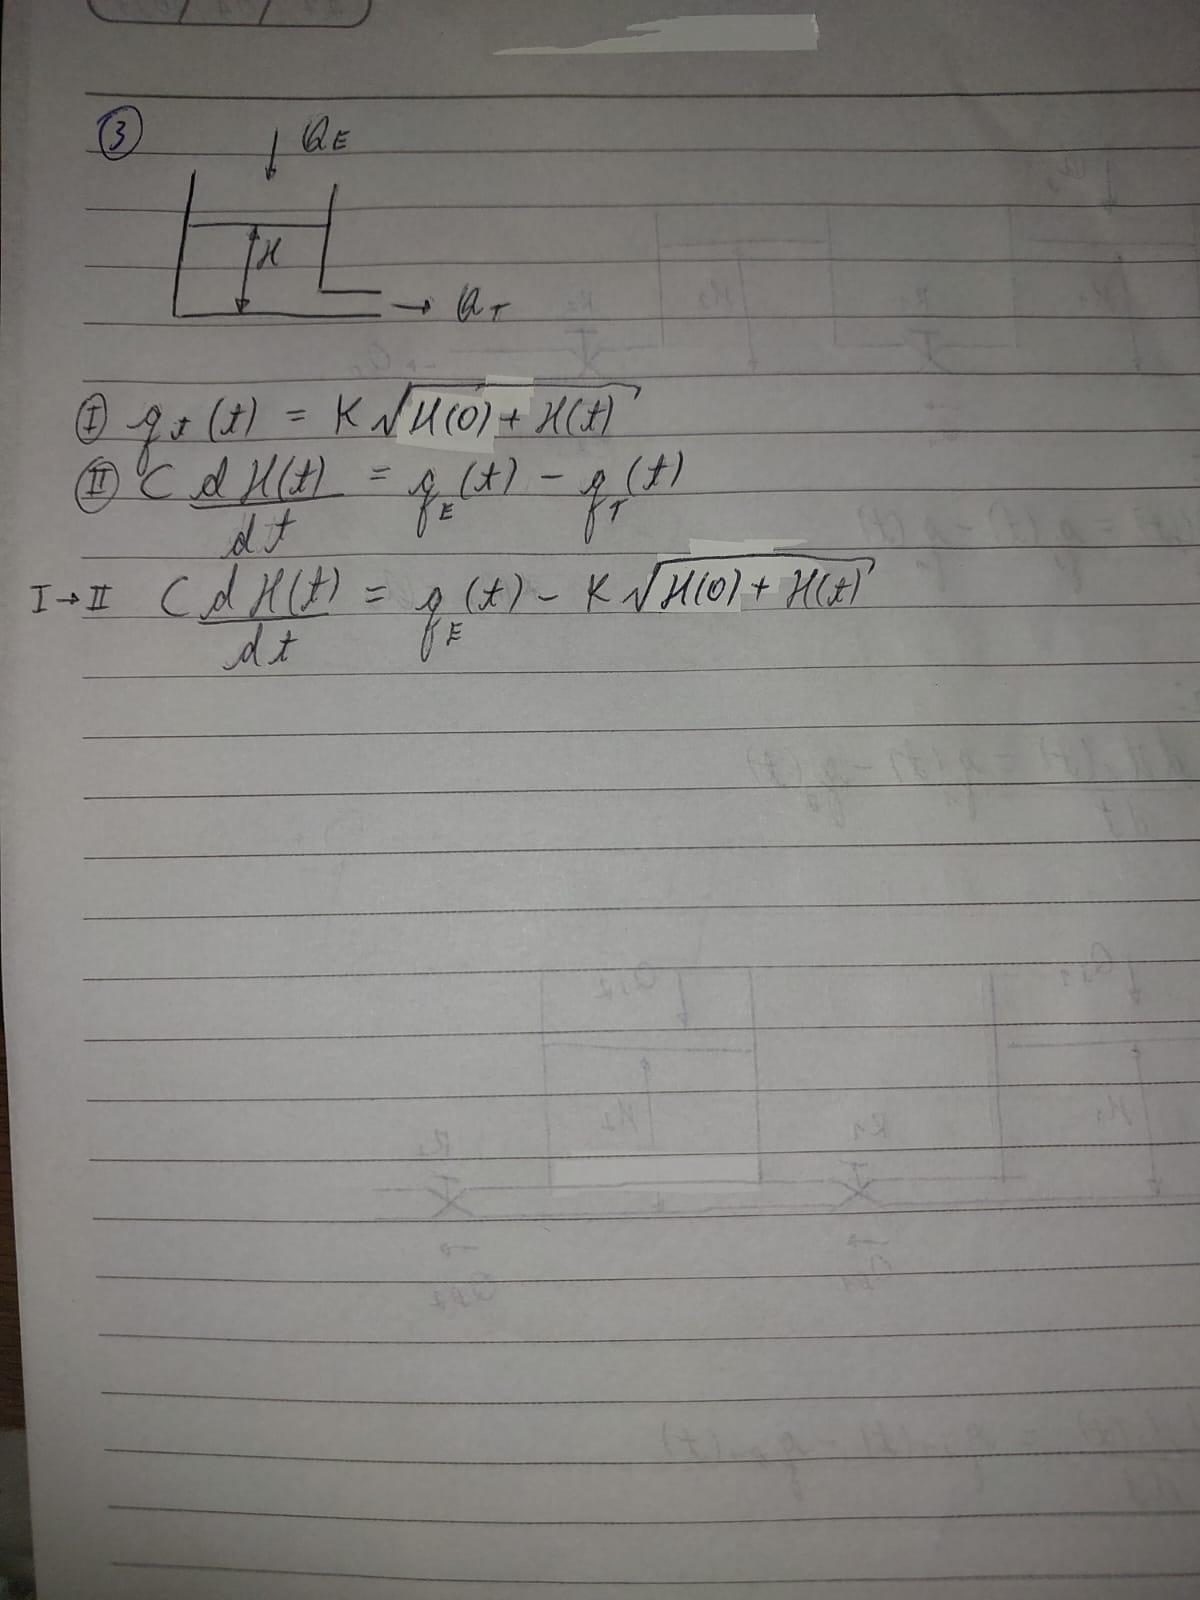 3
↓ QE
H
→ QT
I qt(t) = K√H(0) + H(t)
II C dH(t)/dt = qE(t) − qT(t)
I→II C dH(t)/dt = qE(t) − K√H(0) + H(t)